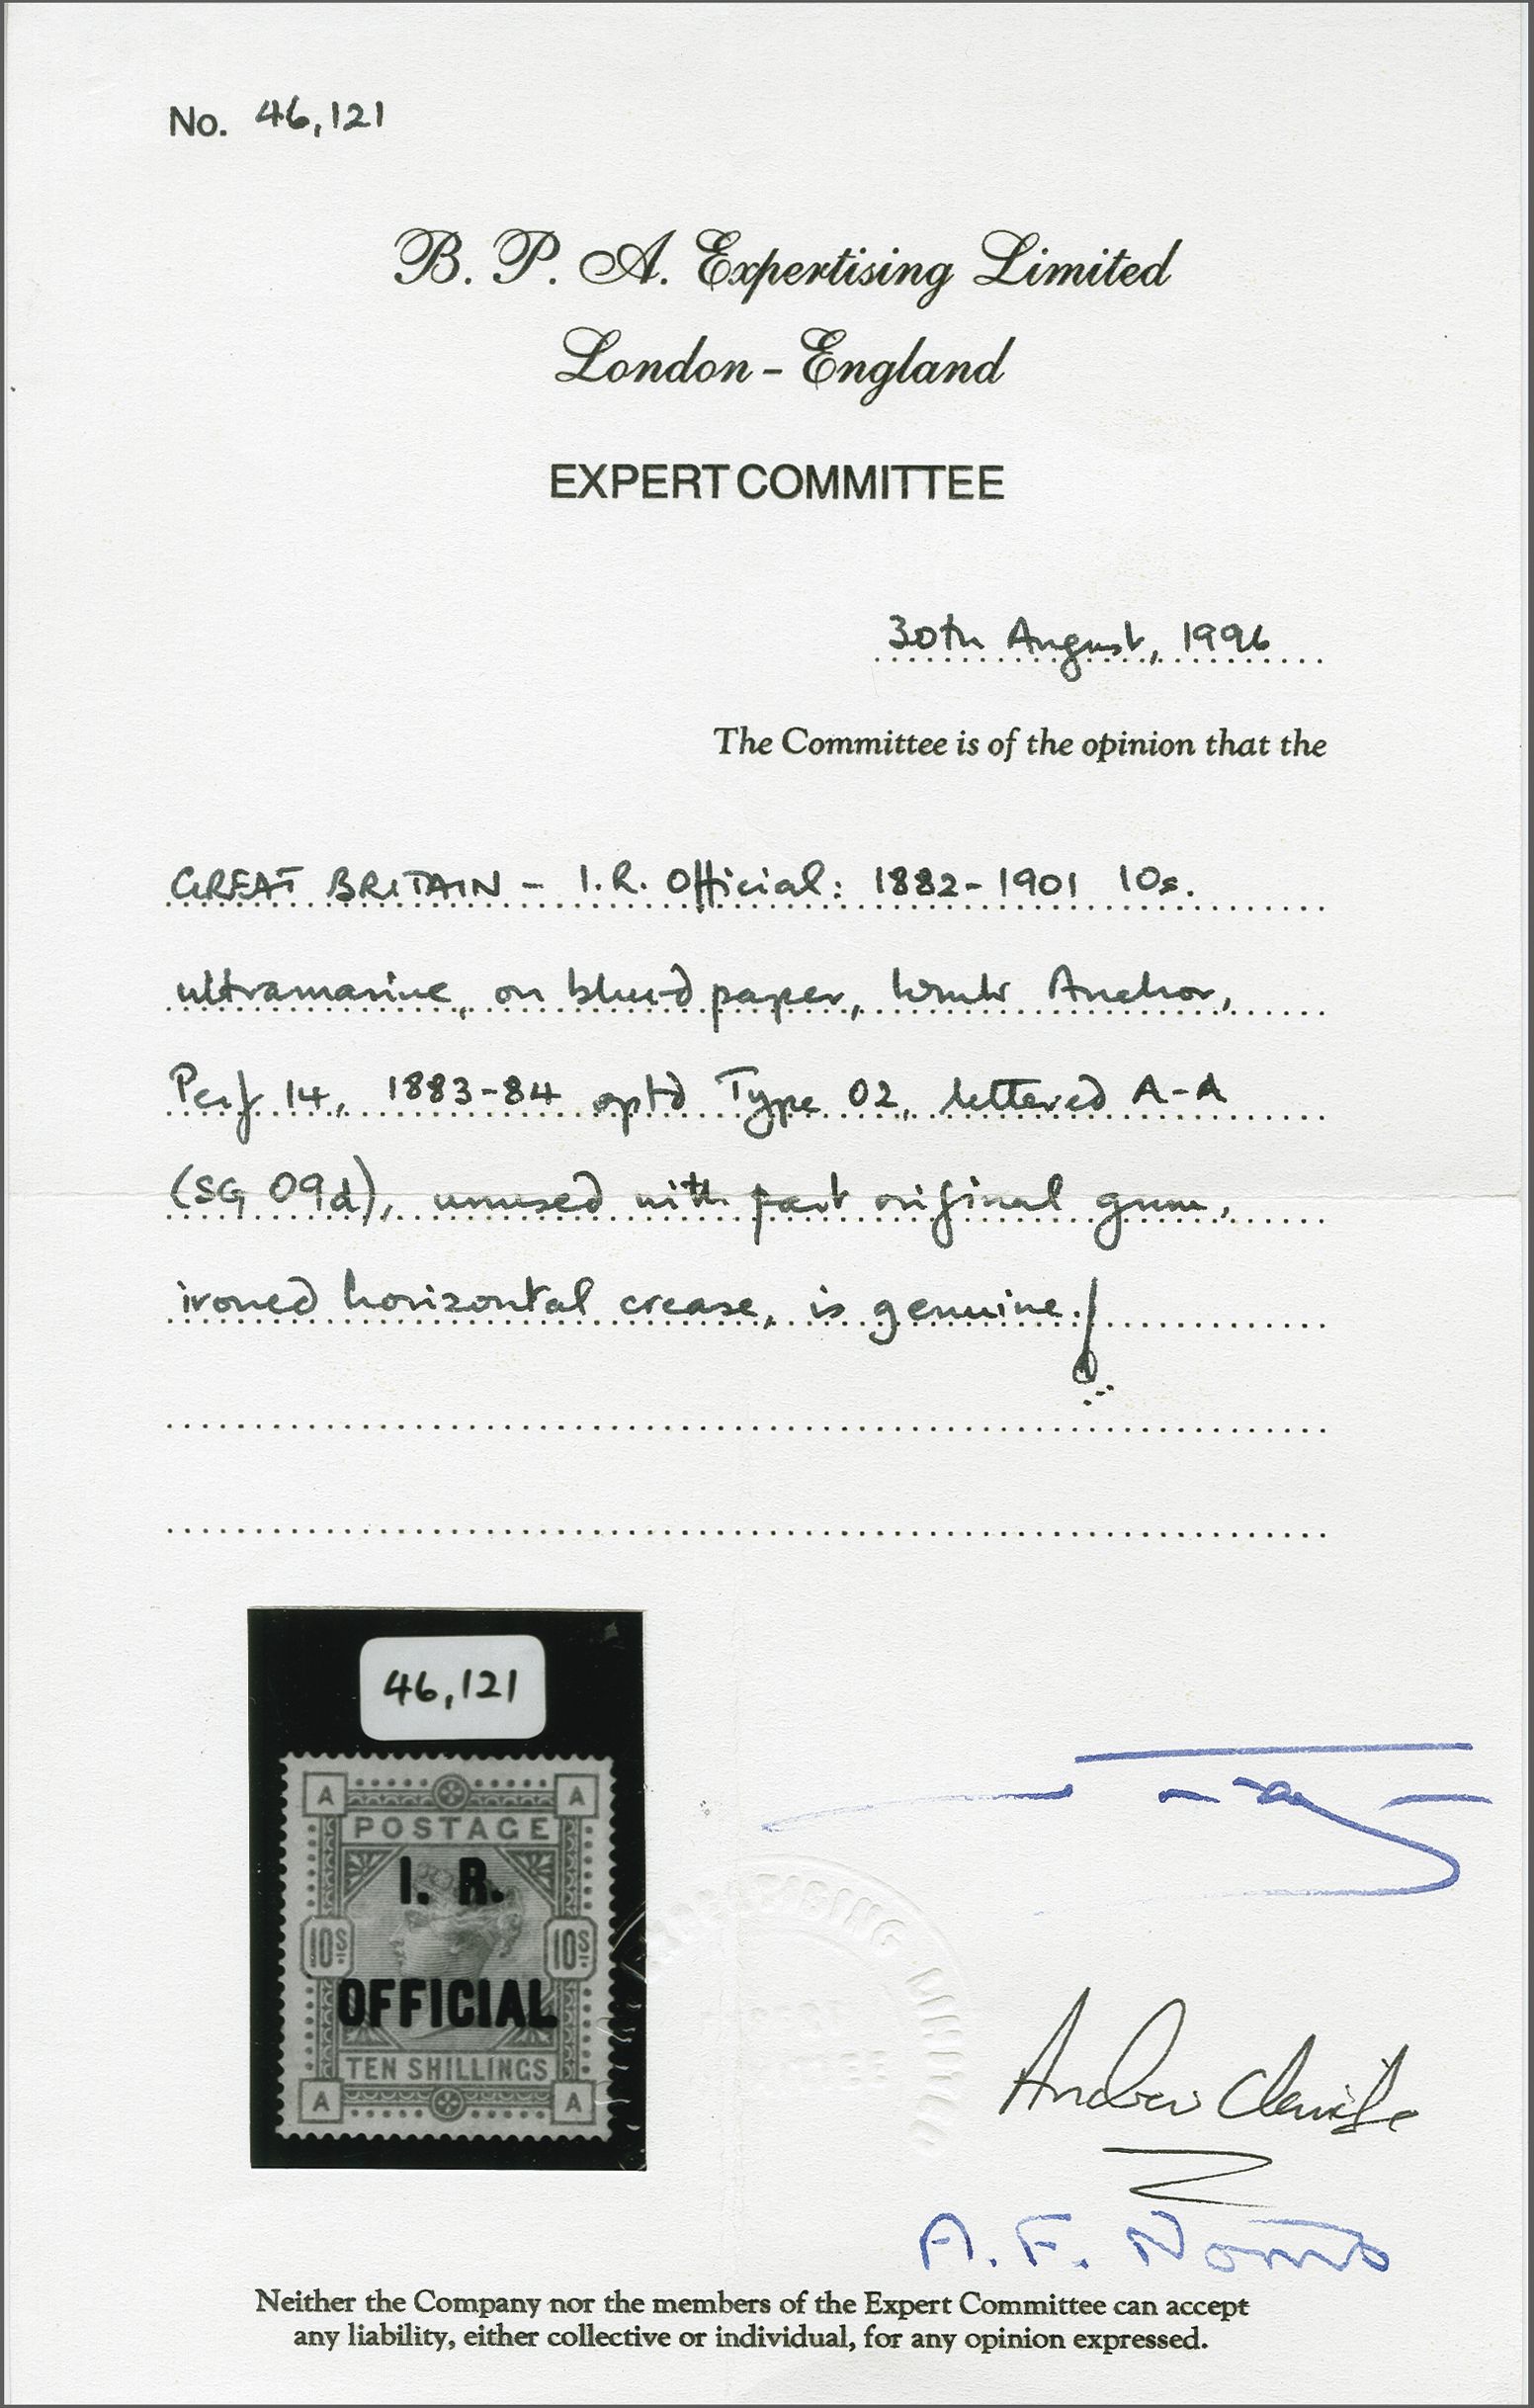 No. 46,121
B. P. A. Expertising Limited
London - England
EXPERT COMMITTEE
30th August, 1996
The Committee is of the opinion that the
GREAT BRITAIN - I.R. Official: 1882-1901 10s.
ultramarine, on blued paper, wmk Anchor,
Perf 14, 1883-84 optd Type 02, lettered A-A
(SG 09d), unused with part original gum,
ironed horizontal crease, is genuine.
46,121
A A
POSTAGE
I. R.
10S 10S
OFFICIAL
TEN SHILLINGS
A A
Andrew
A. F. Norris
Neither the Company nor the members of the Expert Committee can accept
any liability, either collective or individual, for any opinion expressed.